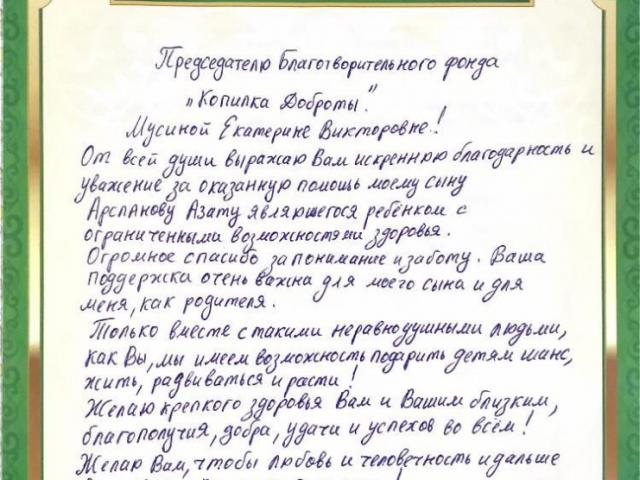 Председателю Благотворительного фонда
„Копилка Доброты".
Мусиной Екатерине Викторовне!
От всей души выражаю Вам искреннюю благодарность и
уважение за оказанную помощь моему сыну
Арсланову Азату являющегося ребёнком с
ограниченными возможностями здоровья.
Огромное спасибо за понимание и заботу. Ваша
поддержка очень важна для моего сына и для
меня, как родителя.
Только вместе с такими неравнодушными людьми,
как Вы, мы имеем возможность подарить детям шанс,
жить, радвиваться и расти!
Желаю крепкого здоровья Вам и Вашим близким,
благополучия, добра, удачи и успехов во всём!
Желаю Вам, чтобы любовь и человечность и дальше